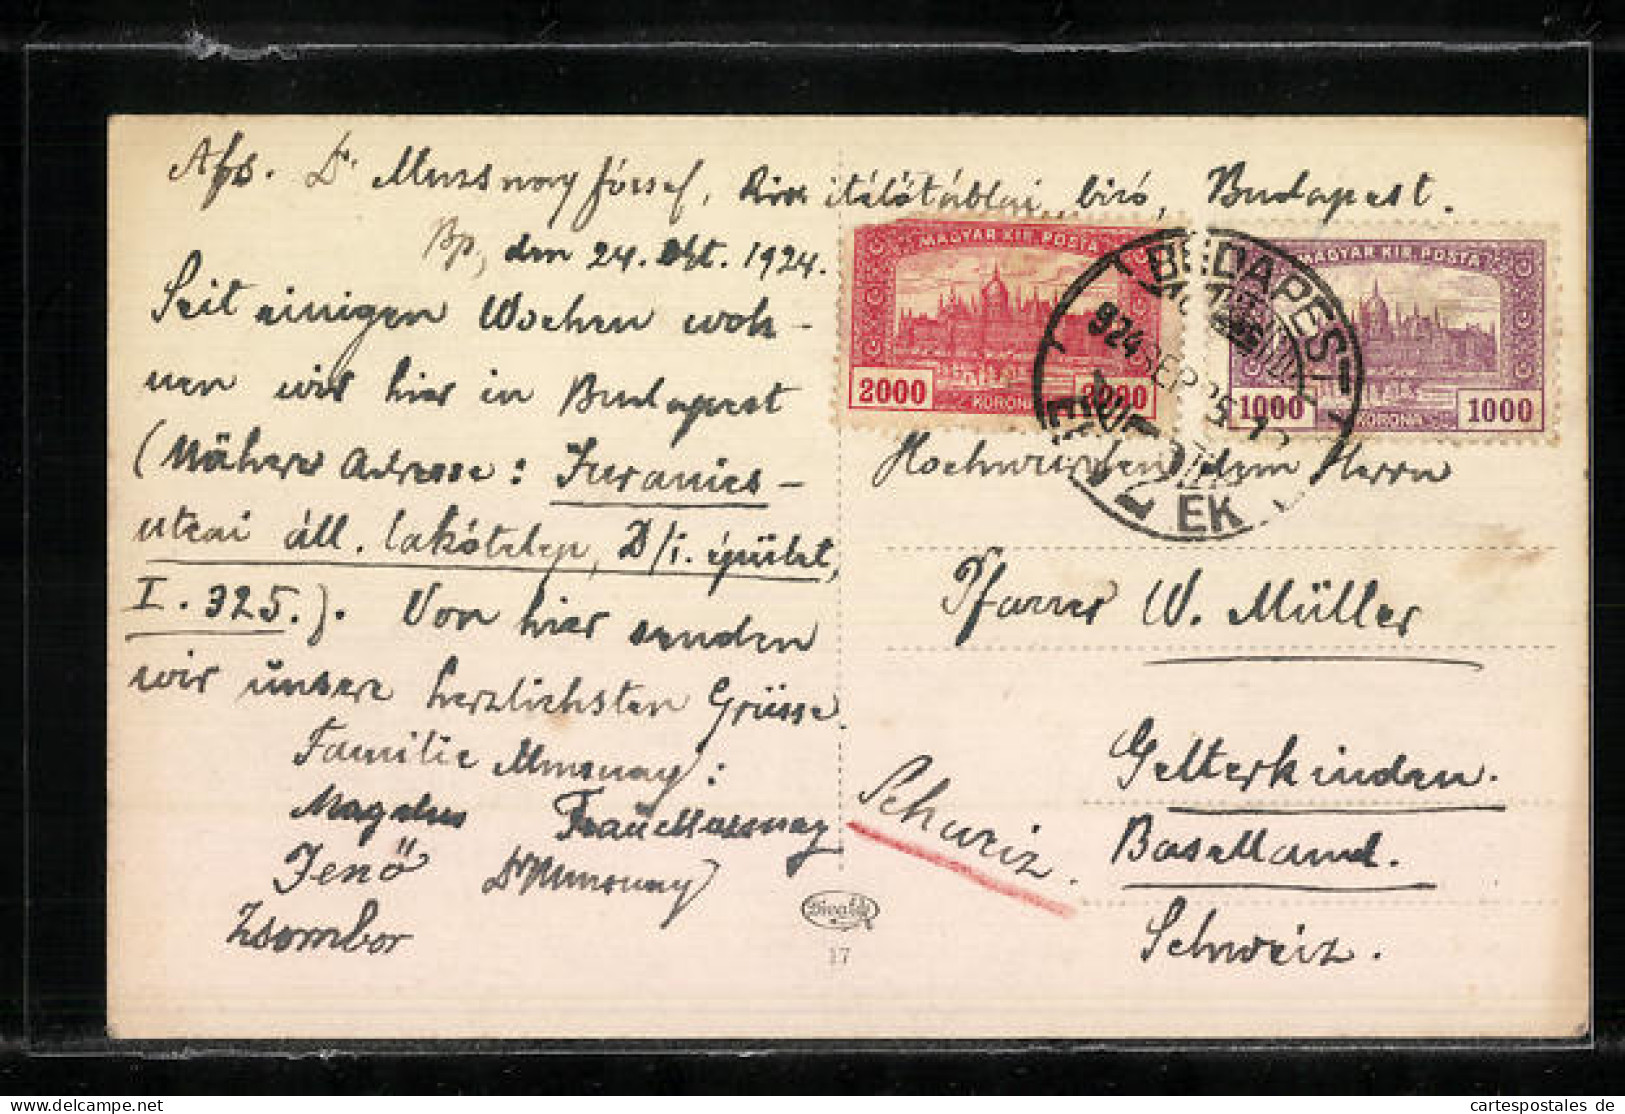 Abs. Dr Mussnay József, kir. itélőtáblai biró, Budapest.
Bp, den 24. Okt. 1924.
Seit einigen Wochen woh-
nen wir hier in Budapest
(Nähere Adresse: Juranics-
utcai áll. lakótelep, D/1. épület,
I. 325.). Von hier senden
wir unsere herzlichsten Grüsse.
Familie Mussnay:
Magdus Frau Mussnay
Jenő Dr Mussnay J
Zsombor
MAGYAR KIR. POSTA
2000 2000
KORONA
MAGYAR KIR. POSTA
1000 1000
KORONA
BUDAPEST
924 SEP 25
Hochwürden dem Herrn
Pfarrer W. Müller
Gelterkinden.
Baselland.
Schweiz.
Schweiz.
Divald
17
delcampe.net
cartespostales de